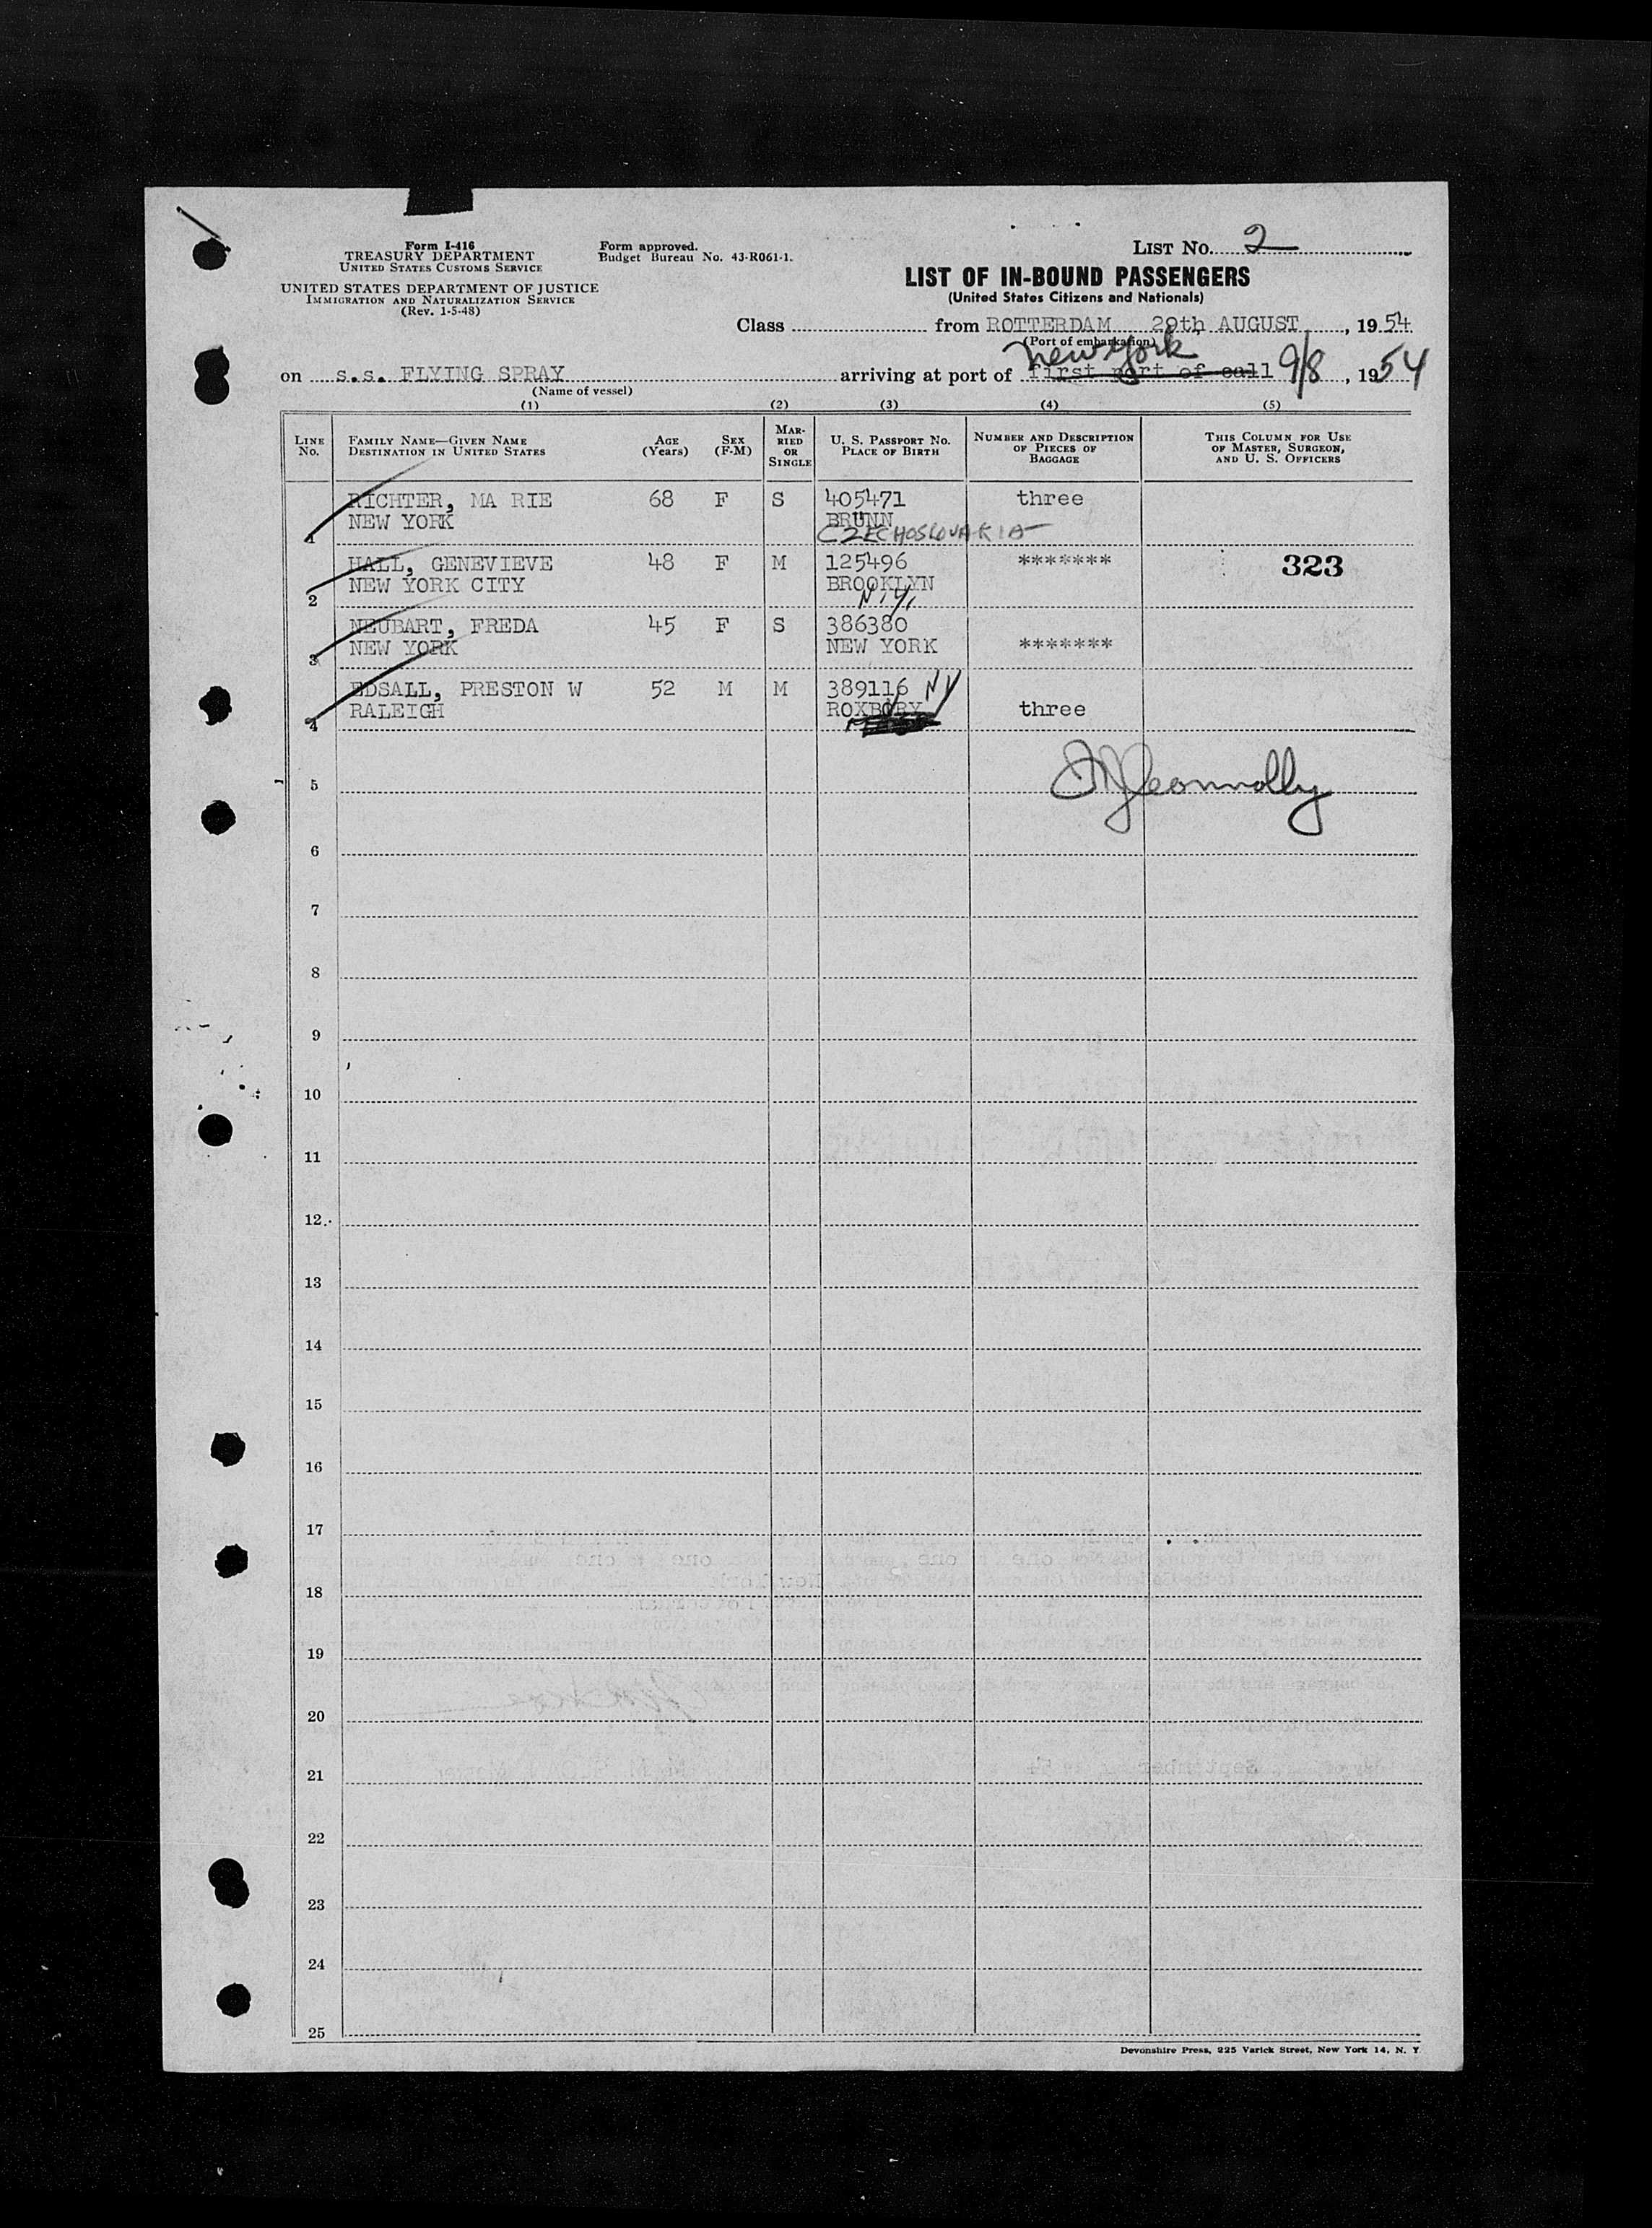 Form I-416
TREASURY DEPARTMENT
UNITED STATES CUSTOMS SERVICE
UNITED STATES DEPARTMENT OF JUSTICE
IMMIGRATION AND NATURALIZATION SERVICE
(Rev. 1-5-48)
Form approved.
Budget Bureau No. 43-R061-1.
LIST No. 2
LIST OF IN-BOUND PASSENGERS
(United States Citizens and Nationals)
Class from ROTTERDAM 29th AUGUST, 1954
(Port of embarkation)
New York
on s.s. FLYING SPRAY arriving at port of first port of call 9/8, 1954
(Name of vessel)
(1) (2) (3) (4) (5)
LINE No. FAMILY NAME—GIVEN NAME DESTINATION IN UNITED STATES AGE (Years) SEX (F-M) MARRIED OR SINGLE U. S. PASSPORT No. PLACE OF BIRTH NUMBER AND DESCRIPTION OF PIECES OF BAGGAGE THIS COLUMN FOR USE OF MASTER, SURGEON, AND U. S. OFFICERS
RICHTER, MA RIE 68 F S 405471 three
NEW YORK BRÜNN
1 CZECHOSLOVAKIA
HALL, GENEVIEVE 48 F M 125496 ******* 323
NEW YORK CITY BROOKLYN
2 N.Y.
NEUBART, FREDA 45 F S 386380
NEW YORK NEW YORK *******
3
EDSALL, PRESTON W 52 M M 389116 NY
RALEIGH ROXBURY three
4
5
6
7
8
9
10
11
12
13
14
15
16
17
18
19
20
21
22
23
24
25
Devonshire Press, 225 Varick Street, New York 14, N. Y.